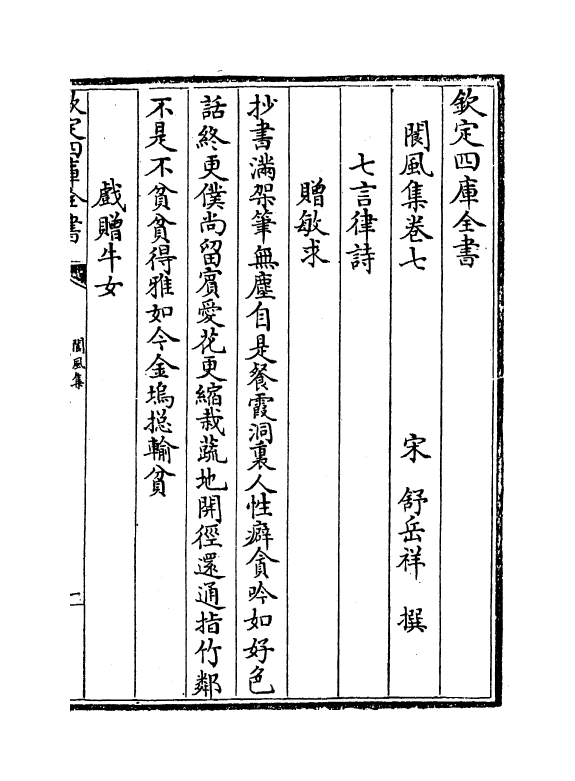 欽定四庫全書
閬風集卷七　　　　宋　舒岳祥　撰
七言律詩
贈敏求
抄書滿架筆無塵自是餐霞洞裏人性癖貪吟如好色
話終更僕尚留賓愛花更縮栽蔬地開徑還通指竹鄰
不是不貧貧得雅如今金塢捴輸貧
戲贈牛女
欽定四庫全書
閬風集
一